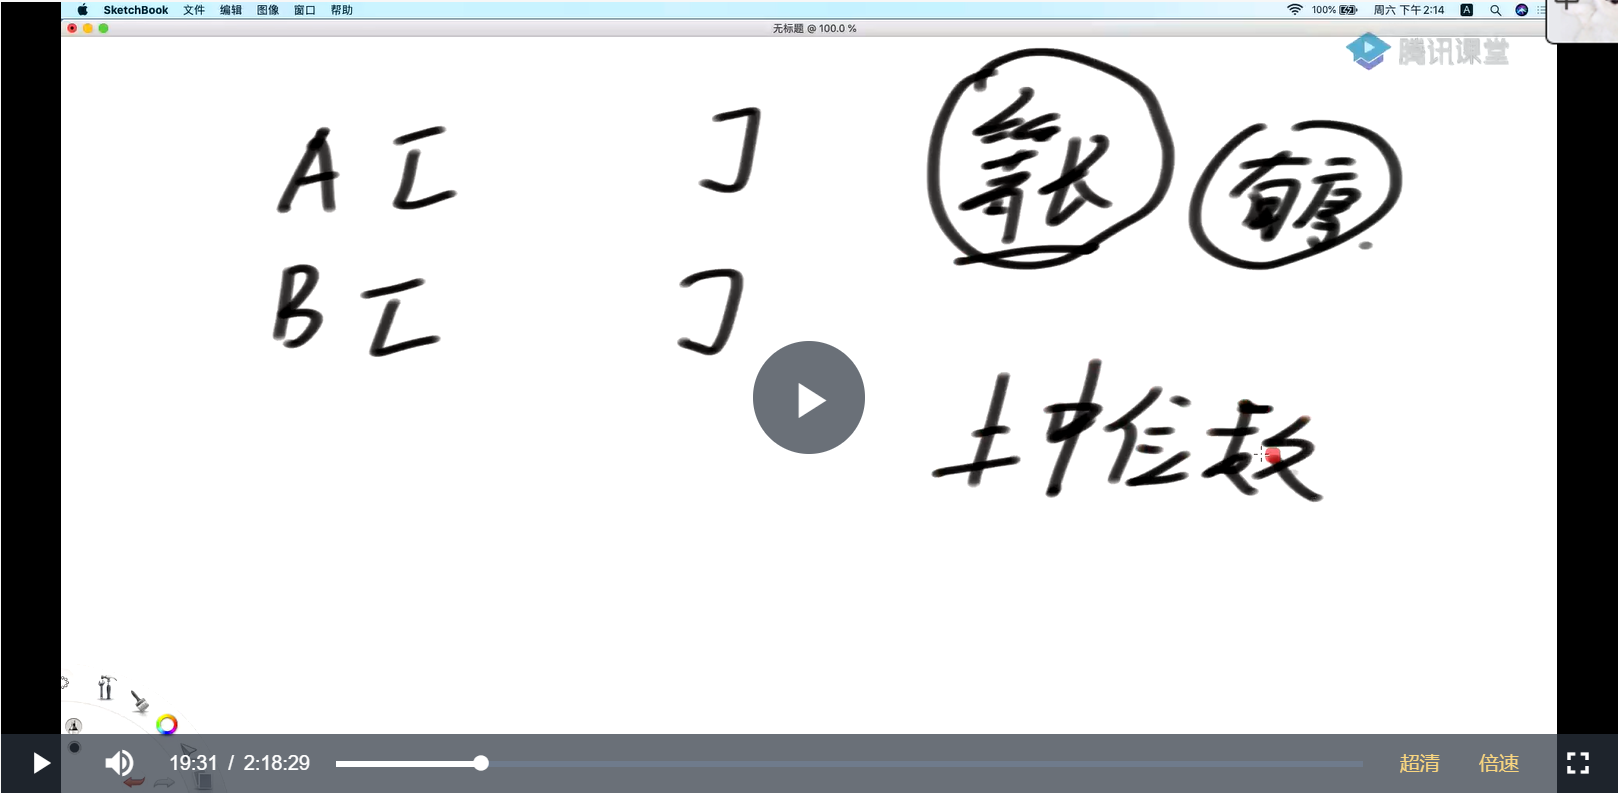 SketchBook 文件 编辑 图像 窗口 帮助 100% 周六 下午2:14 A
无标题 @ 100.0 %
腾讯课堂
A [ ] 等长 有序
B [ ]
上中位数
19:31 / 2:18:29 超清 倍速